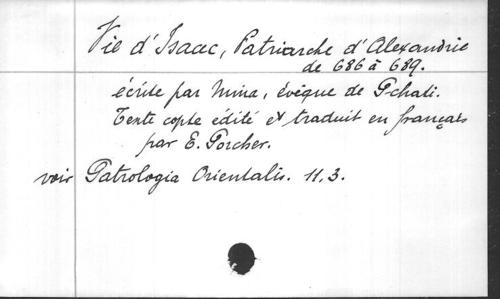 Vie d'Isaac, Patriarche d'Alexandrie
de 686 à 689.
écrite par Mina, évêque de Pchati.
Texte copte édité et traduit en français
par E. Porcher.
voir Patrologia Orientalis. 11,3.